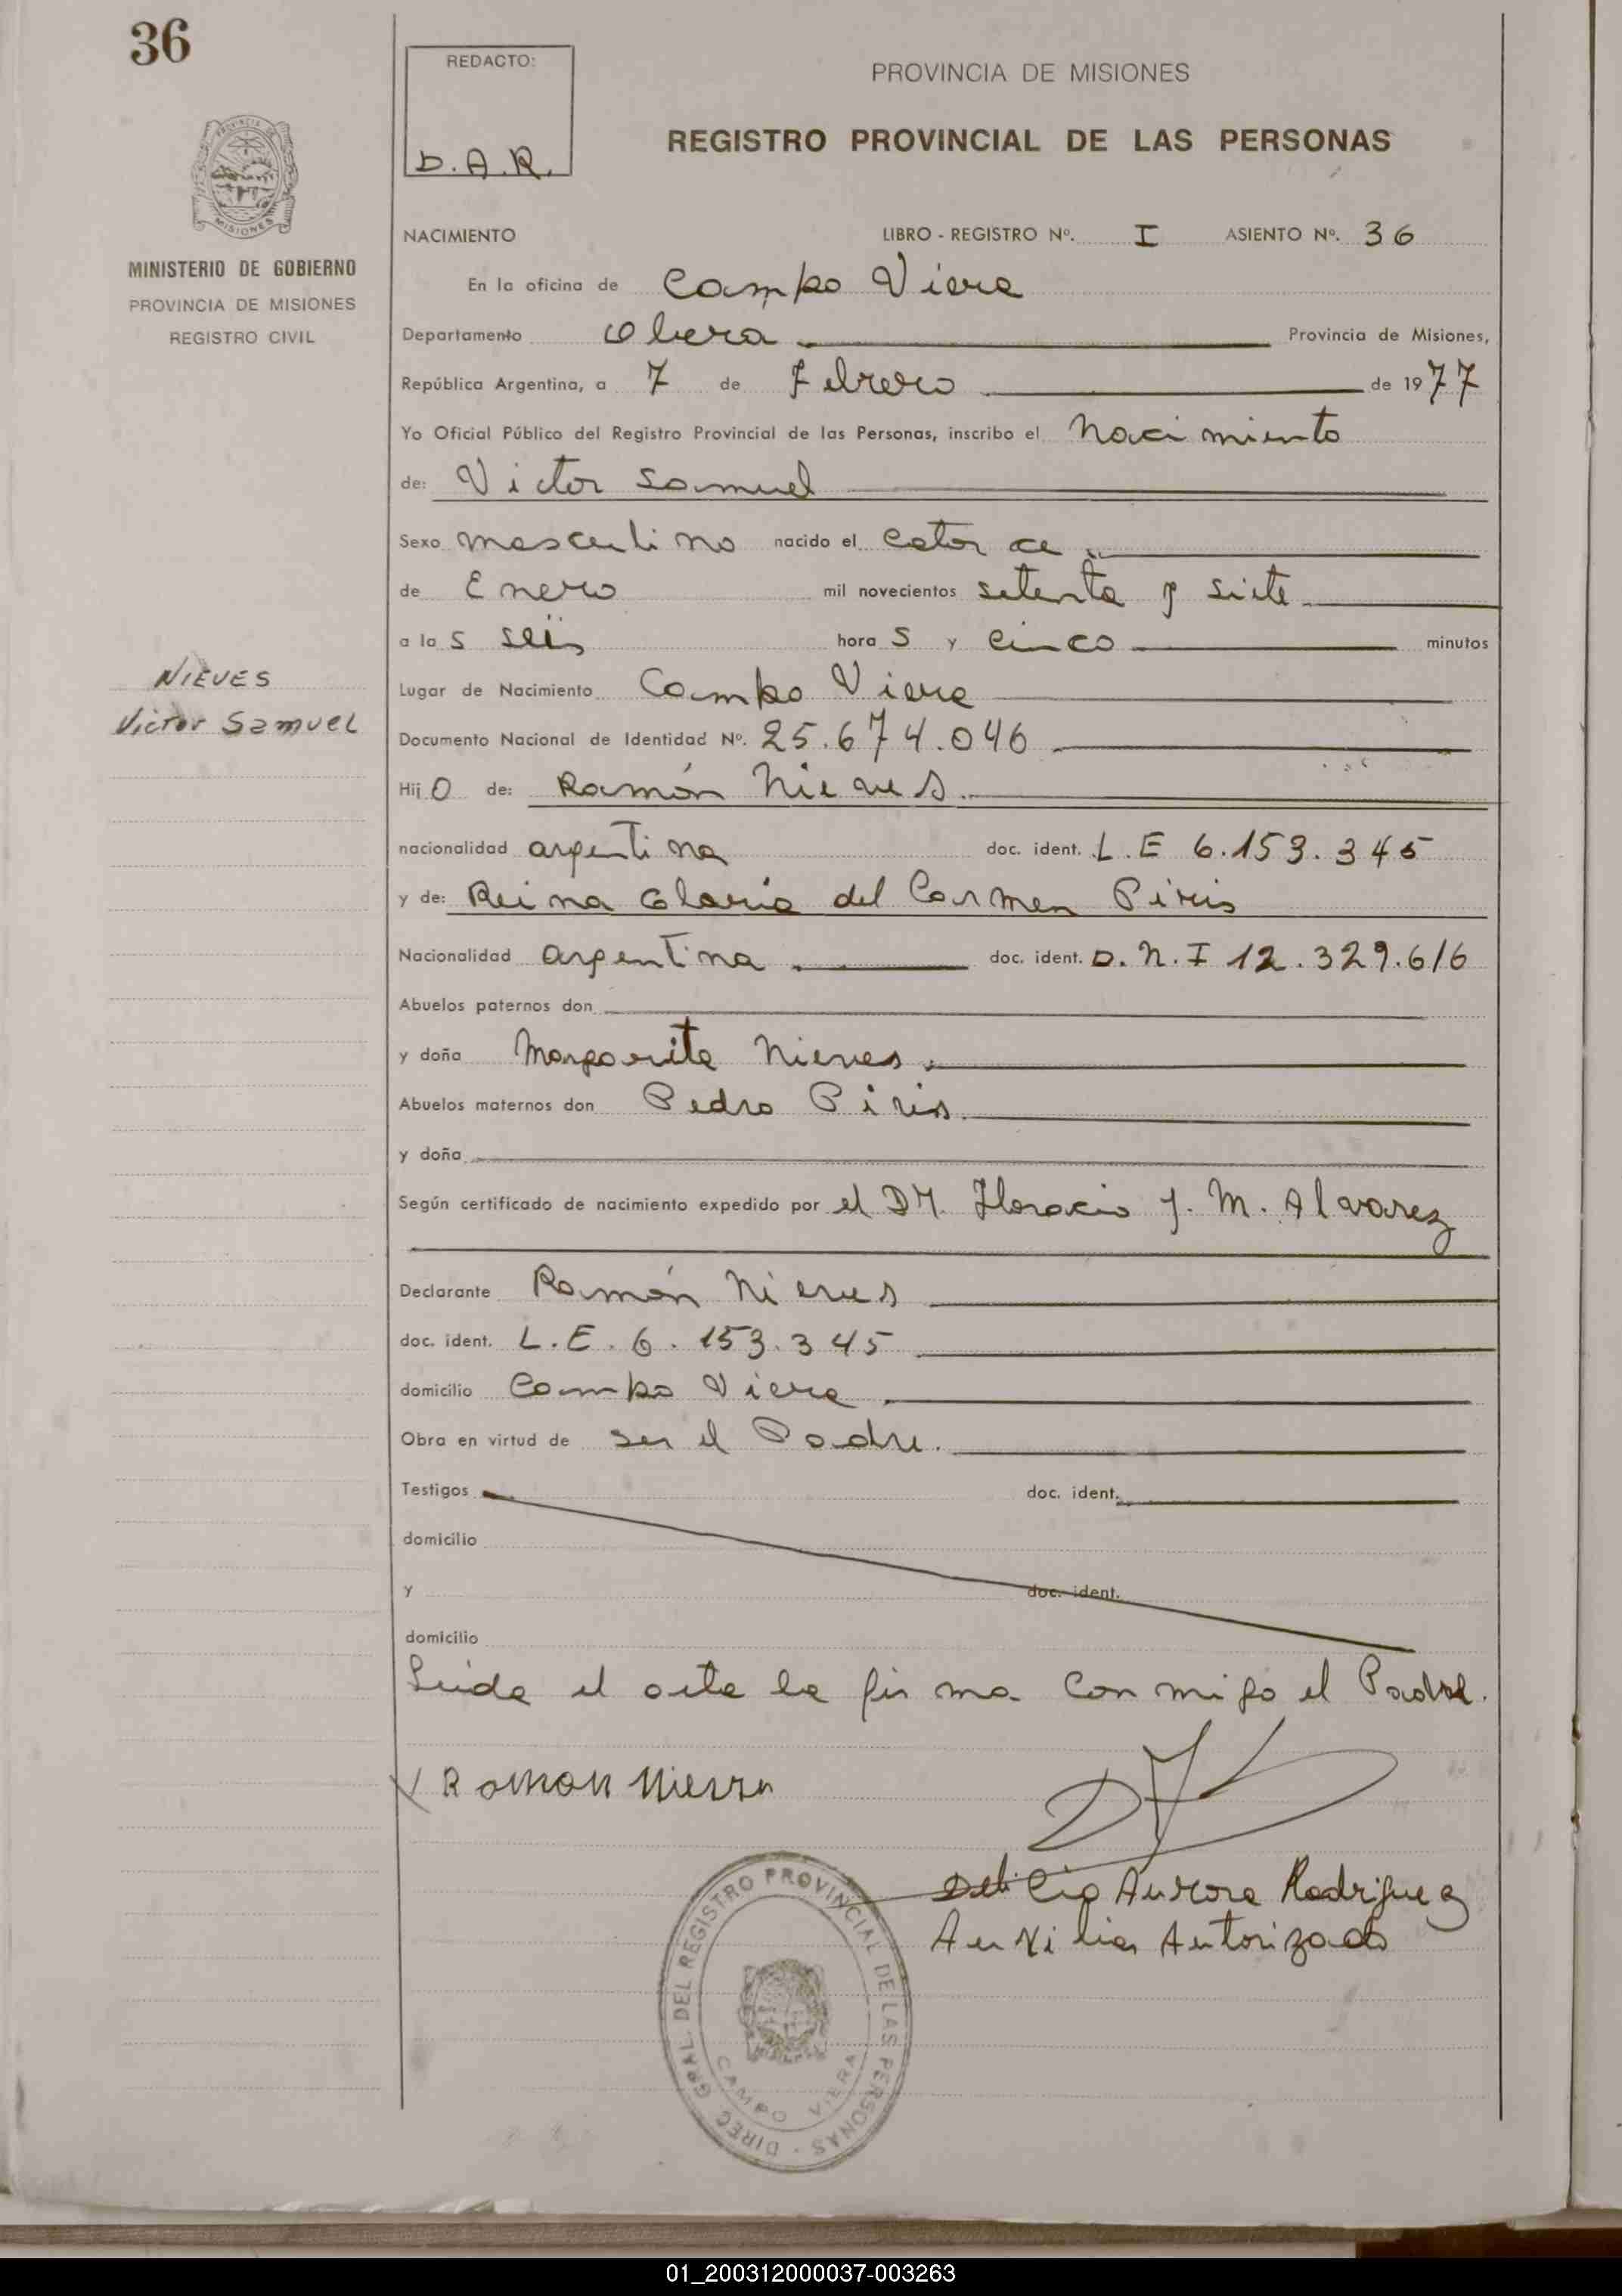 36
REDACTO:
D.A.R.
PROVINCIA DE MISIONES
REGISTRO PROVINCIAL DE LAS PERSONAS
PROVINCIA DE
MISIONES
MINISTERIO DE GOBIERNO
PROVINCIA DE MISIONES
REGISTRO CIVIL
NACIMIENTO LIBRO - REGISTRO Nº. I ASIENTO Nº. 36
En la oficina de Campo Viera
Departamento Oberá Provincia de Misiones,
República Argentina, a 7 de Febrero de 1977
Yo Oficial Público del Registro Provincial de las Personas, inscribo el Nacimiento
de: Victor Samuel
Sexo masculino nacido el catorce
de Enero mil novecientos setenta y siete
a las seis horas y cinco minutos
NIEVES
Victor Samuel
Lugar de Nacimiento Campo Viera
Documento Nacional de Identidad Nº. 25.674.046
Hijo de: Ramón Nieves
nacionalidad argentina doc. ident. L.E 6.153.345
y de: Reina Gloria del Carmen Piris
Nacionalidad argentina doc. ident. D.N.I 12.329.616
Abuelos paternos don
y doña Margarita Nieves
Abuelos maternos don Pedro Piris
y doña
Según certificado de nacimiento expedido por el Dr. Horacio J. M. Alvarez
Declarante Ramón Nieves
doc. ident. L.E. 6.153.345
domicilio Campo Viera
Obra en virtud de ser el Padre.
Testigos doc. ident.
domicilio
y doc. ident.
domicilio
Leida el acta la firma conmigo el Padre.
Ramon Nieves
Delicia Aurora Rodriguez
Auxiliar Autorizado
DIREC. GRAL. DEL REGISTRO PROVINCIAL DE LAS PERSONAS
CAMPO VIERA
01_200312000037-003263